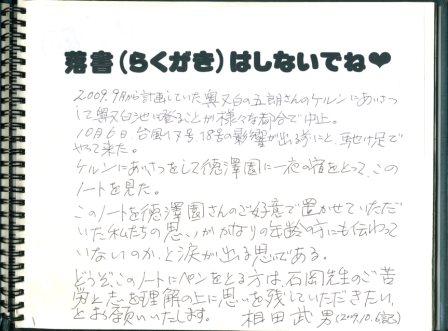 落書(らくがき)はしないでね♥
2009.9月から計画していた奥又白の五朗さんのケルンにあいさつ
して奥又白池に登ることが様々な都合で中止。
10月6日 台風17号、18号の影響が出る前にと、駈け足で
やって来た。
ケルンにあいさつをして徳澤園に一夜の宿をとって、この
ノートを見た。
このノートを徳澤園さんのご好意で置かせていただ
いた私たちの思いがかなりの年齢の方にも伝わって
いないのか、と涙が出る思である。
どうぞ、このノートにペンをとる方は、石岡先生のご苦
労と志を理解の上に思いを残していただきたい、
とお願いいたします。 相田 武男(2009.10.6記)